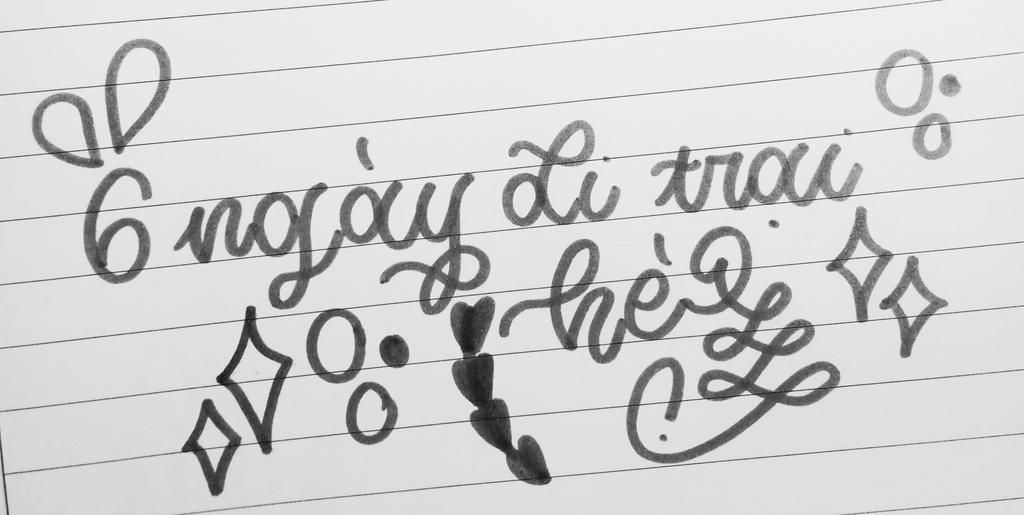 6 ngày đi trại
hè